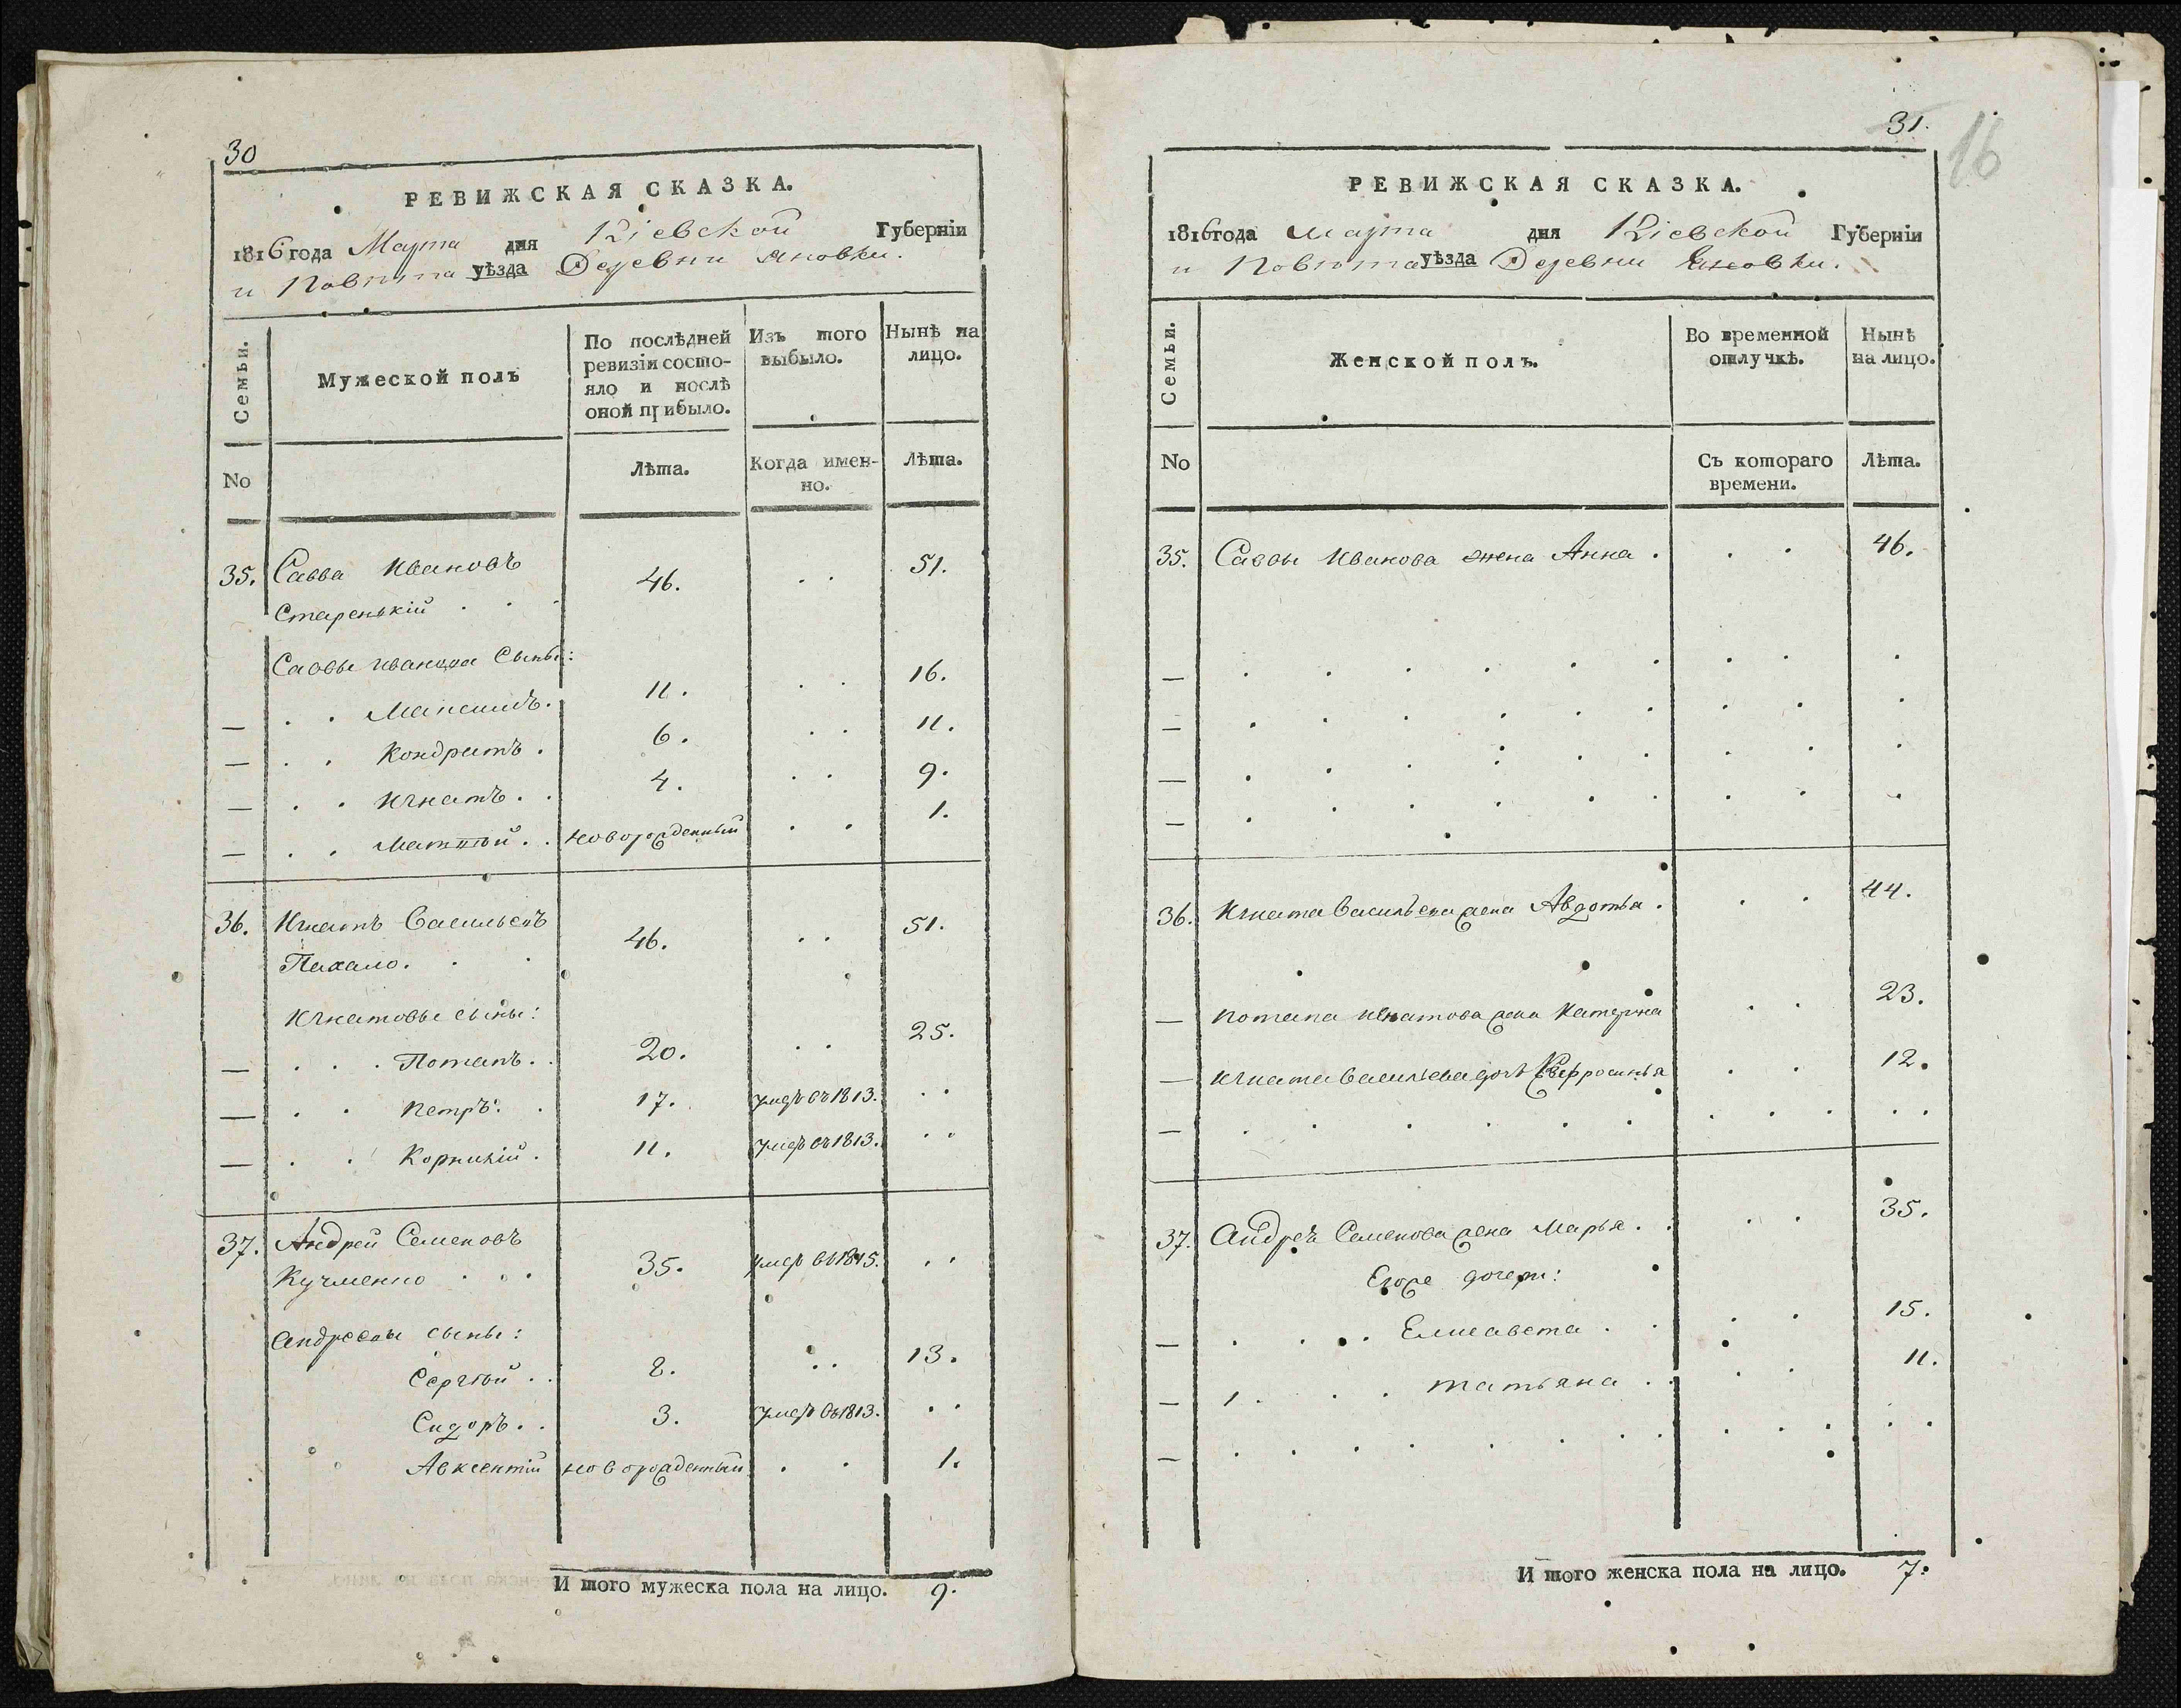 30
РЕВИЖСКАЯ СКАЗКА.
1816 года Марта дня Кіевской Губерніи
и Повѣта уѣзда Деревни Яновки.
Семьи.
Мужеской полъ
По послѣдней
ревизіи состо-
яло и послѣ
оной прибыло.
Изъ того
выбыло.
Нынѣ на
лицо.
No
Лѣта.
Когда имен-
но.
Лѣта.
35. Савва Ивановъ 46. 51.
Старенькій
Саввы Иванова Сыны:
— Максимъ. 11. 16.
— Кондратъ. 6. 11.
— Игнатъ. 4. 9.
— Матвѣй. новорожденный 1.
36. Игнатъ Васильевъ 46. 51.
Пахало.
Игнатовы сыны:
— Потапъ. 20. 25.
— Петръ. 17. умеръ въ 1813.
— Корнилій. 11. умеръ въ 1813.
37. Андрей Семеновъ
Кучменко 35. умеръ въ 1815.
Андреевы сыны:
Сергѣй. 8. 13.
Сидоръ. 3. умеръ въ 1813.
Авксентий новорожденный 1.
И того мужеска пола на лицо. 9.
31.
16
РЕВИЖСКАЯ СКАЗКА.
1816 года Марта дня Кіевской Губерніи
и Повѣта уѣзда Деревни Яновки.
Семьи.
Женской полъ.
Во временной
отлучкѣ.
Нынѣ
на лицо.
No
Съ котораго
времени.
Лѣта.
35. Саввы Иванова жена Анна. 46.
—
—
—
—
36. Игната Васильева жена Авдотья. 44.
— Потапа Игнатова жена Катерина 23.
— Игната Васильева дочь Евфросинья 12.
—
37. Андрея Семенова жена Марья. 35.
Егоже дочери:
— Елисавета 15.
— Татьяна 11.
—
И того женска пола на лицо. 7.